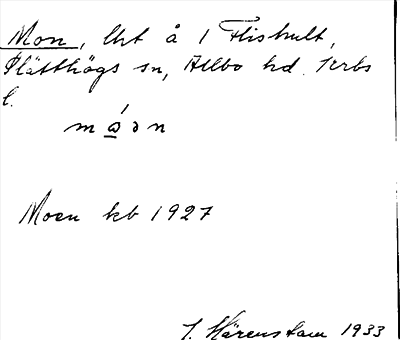 Mon, lht å 1 Flishult,
Slätthögs sn, Allbo hd. Krbs
l.
m ώ ə n
Moen kb 1927
J. Härenstam 1933